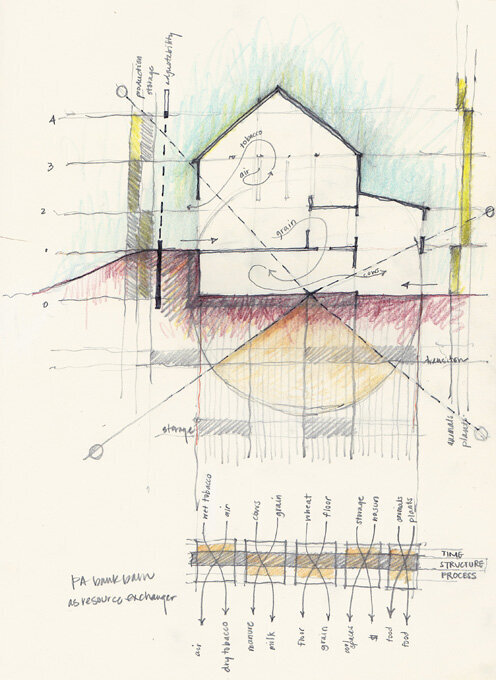 production
storage
adjustability
4
3
2
1
0
tobacco
air
grain
cows
transition
storage
animals
plants
wet tobacco
air
cows
grain
wheat
floor
storage
no sun
animals
plants
TIME
STRUCTURE
PROCESS
PA bank barn
as resource exchanger
air
dry tobacco
manure
milk
floor
grain
spaces
$
food
food